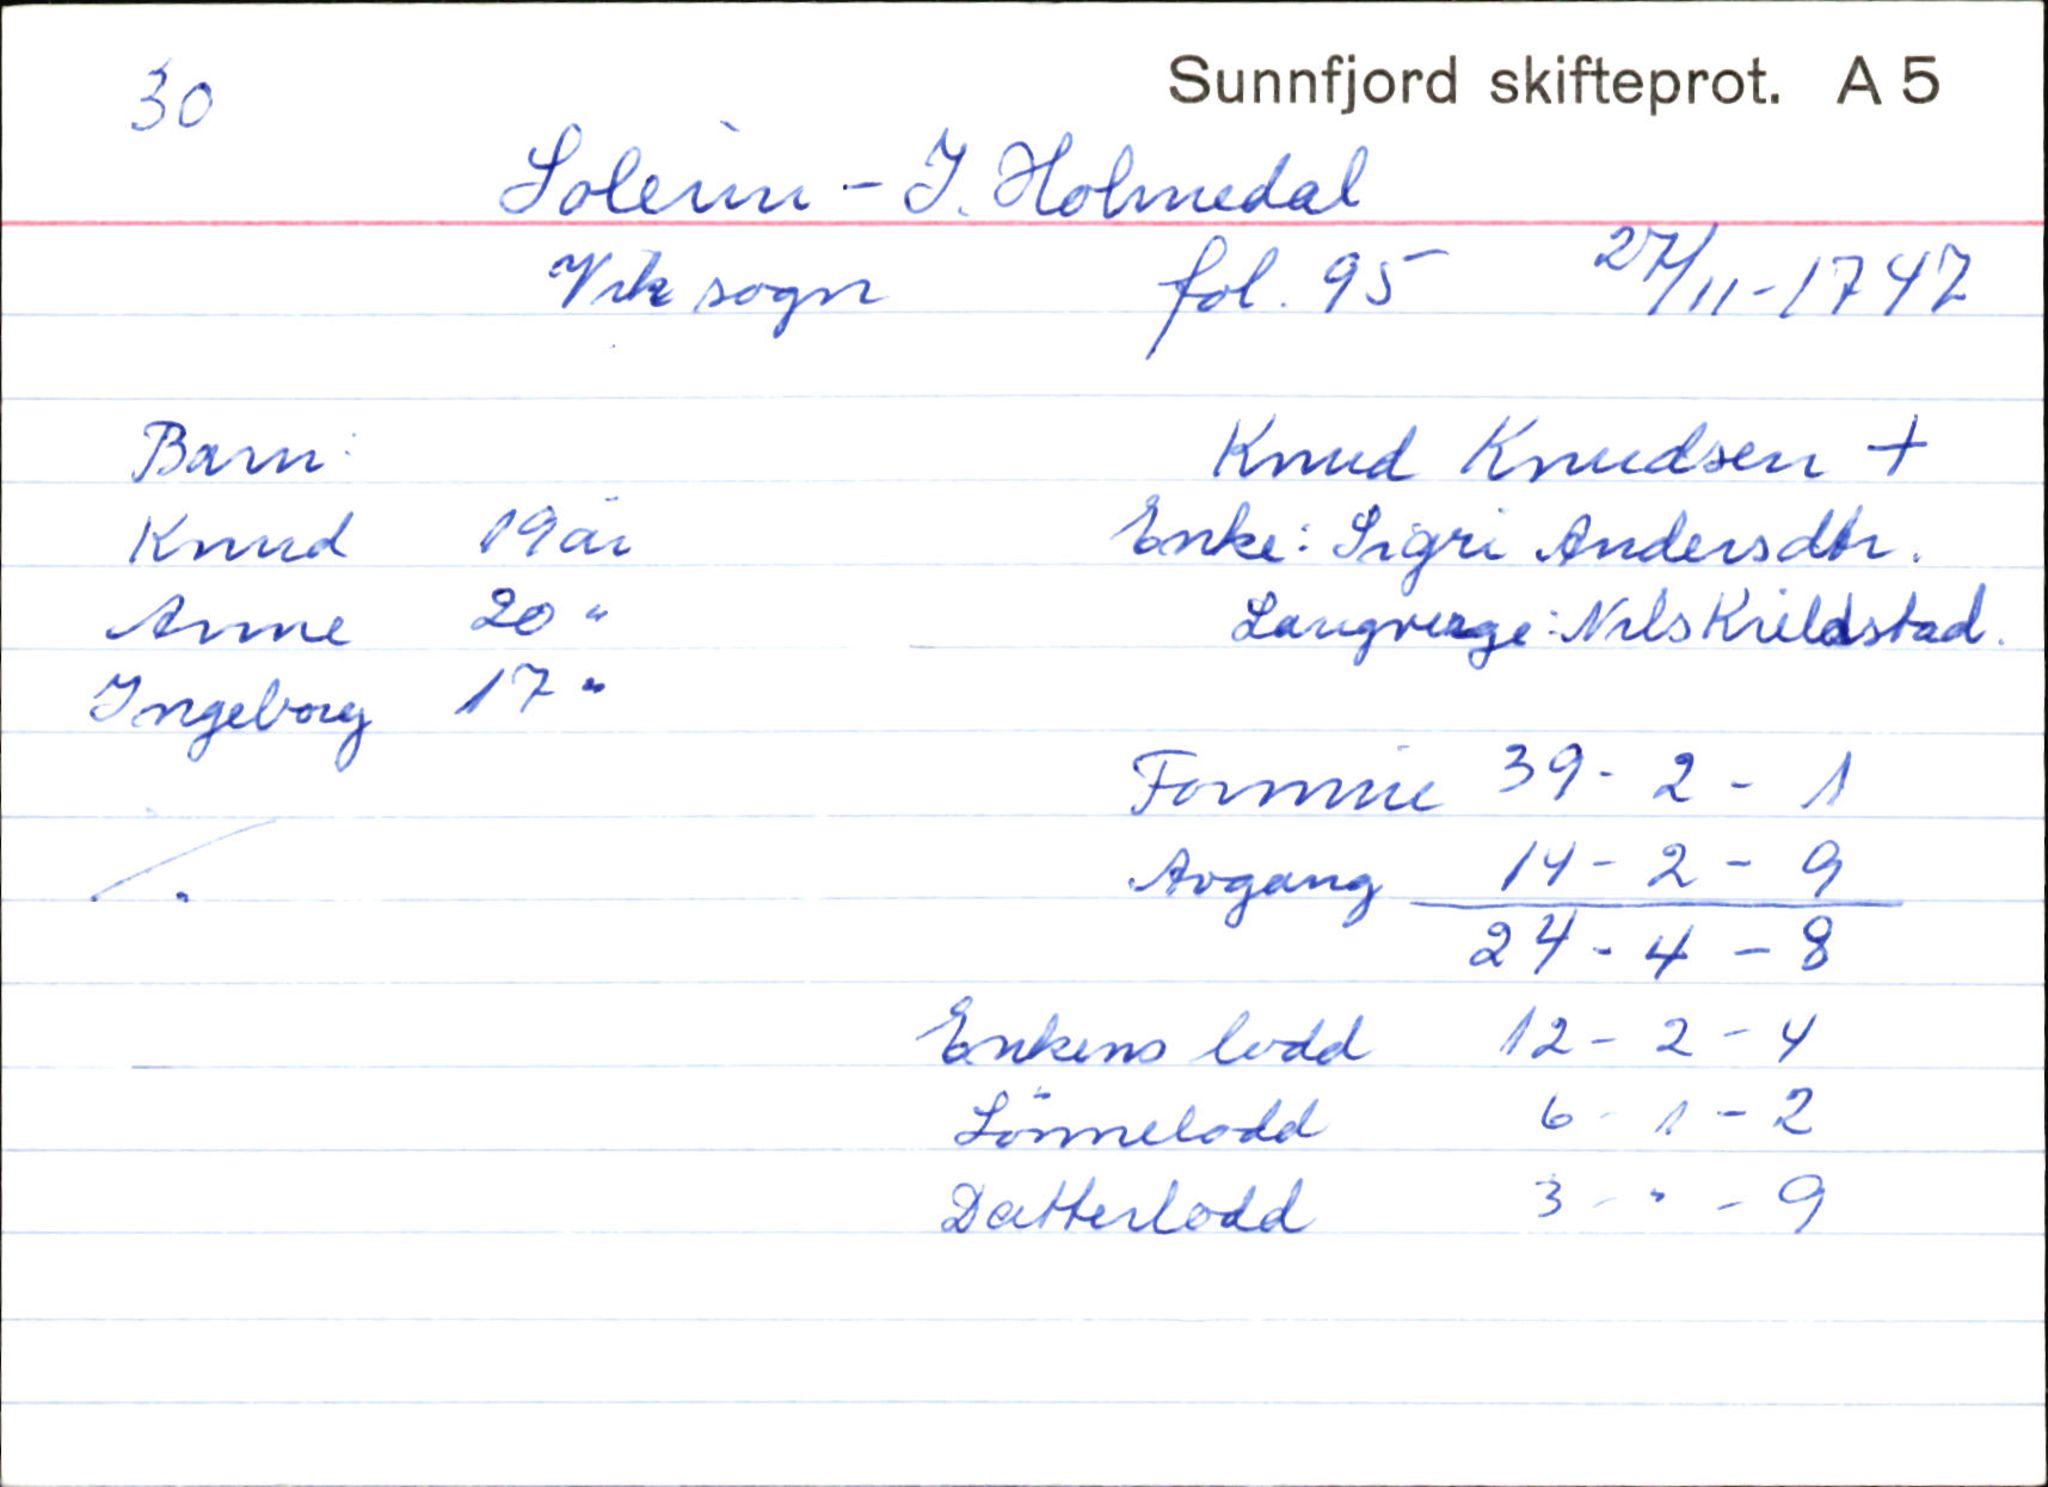 30
Sunnfjord skifteprot. A 5
Soleim - I. Holmedal
Vik sogn fol. 95 27/11-1747
Barn:
Knud 19 år
Anne 20 "
Ingeborg 17 "
Knud Knudsen +
Enke: Sigri Andersdtr.
Laugverge: Nils Krildstad.
Formue 39 - 2 - 1
Avgang 14 - 2 - 9
24 - 4 - 8
Enkens lodd 12 - 2 - 4
Sönnelodd 6 - 1 - 2
Datterlodd 3 - " - 9